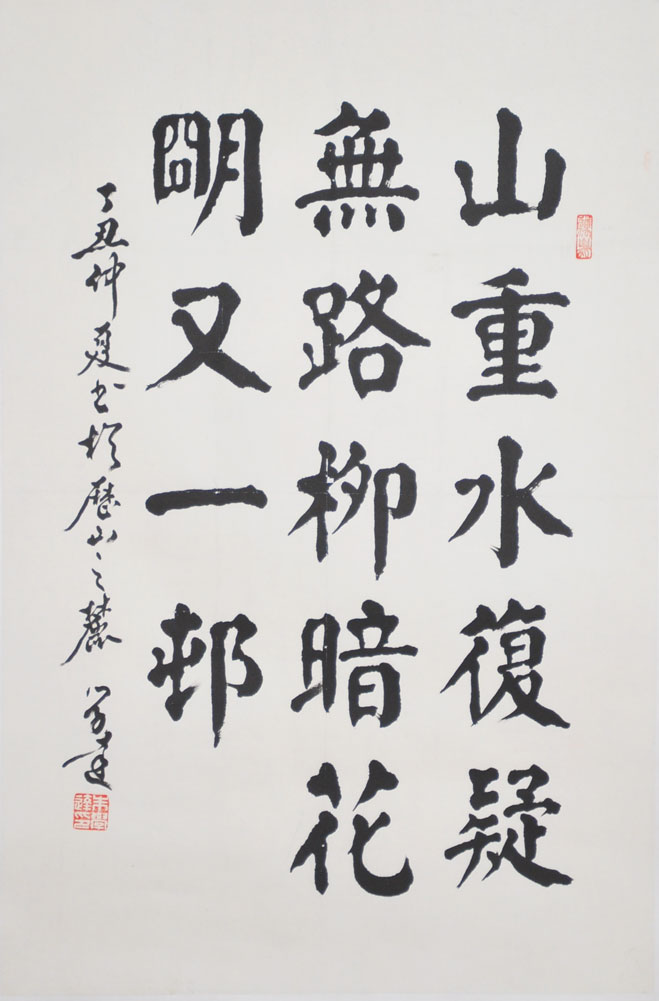 山重水復疑
無路柳暗花
明又一邨
丁丑仲夏书於歷山之麓